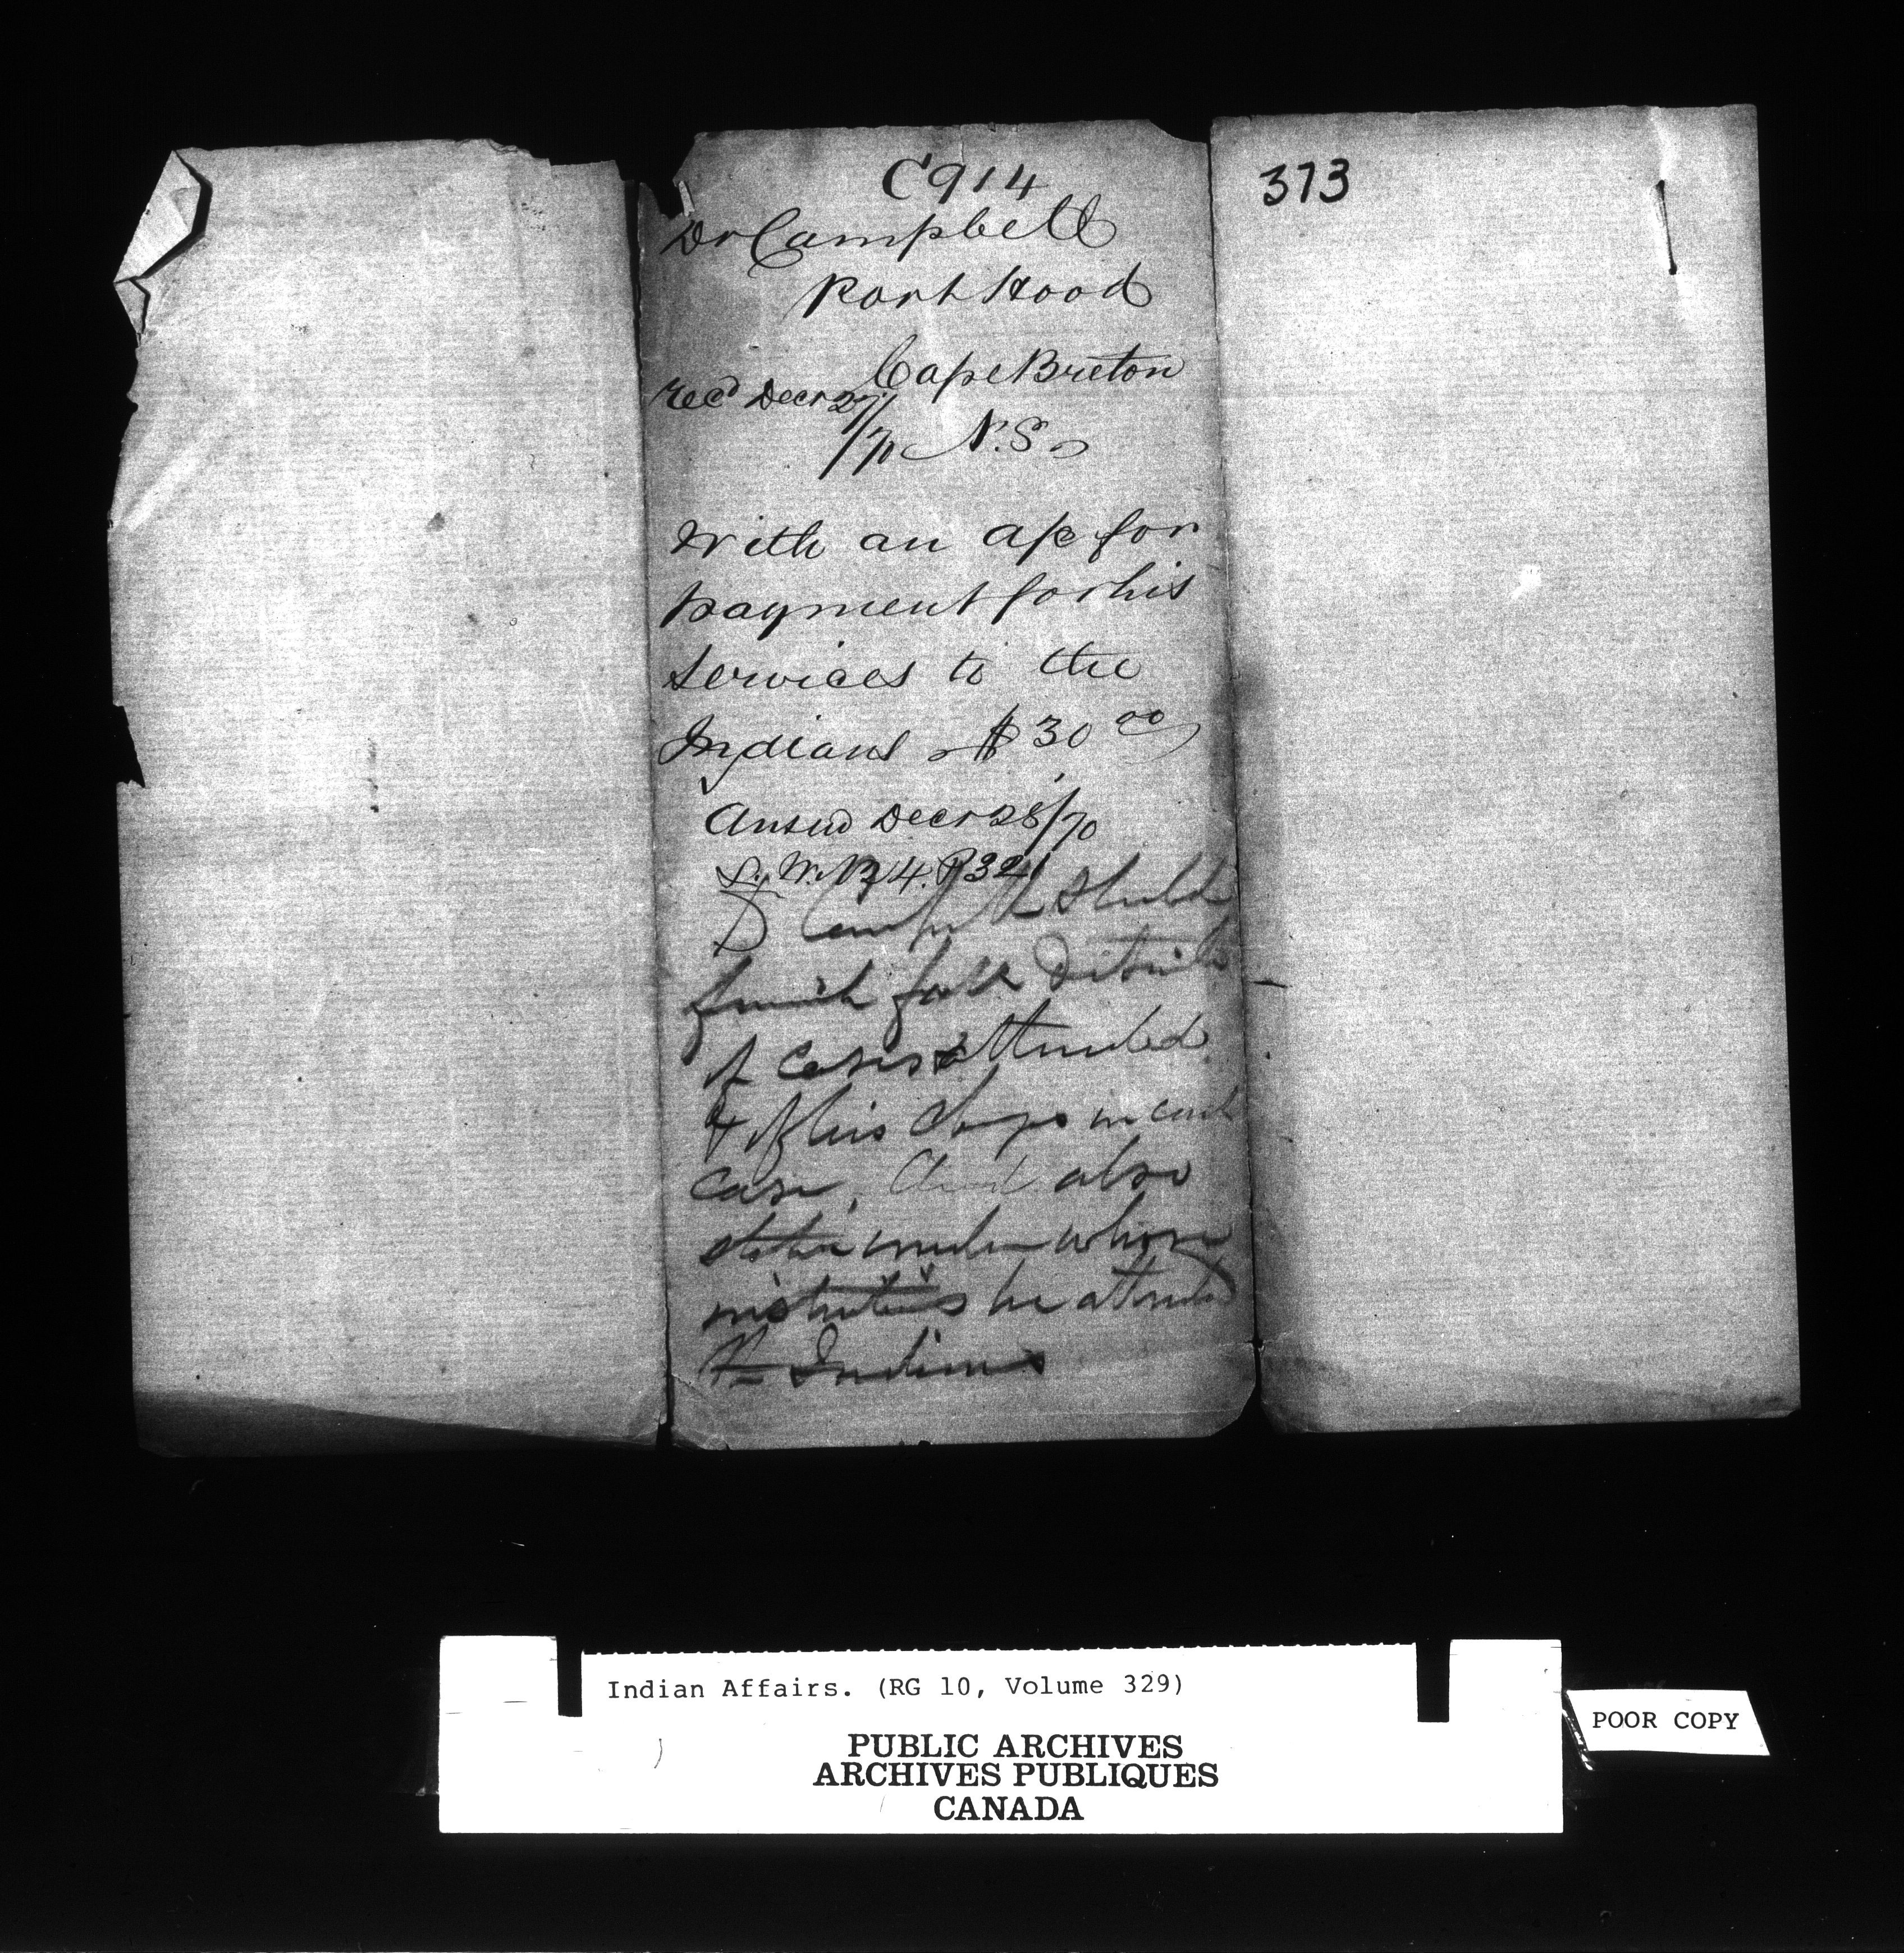 C914
373
Dr Campbell
Port Hood
Cape Breton
Recd Decr 27/70
N.S.
With an a/c for
payment for his
services to the
Indians $30 00
Answd Decr 28/70
L.W.B 4. P321
Dr Campbell should
furnish full details
of cases attended
& of his charges in each
case, and also
state under whose
instructions he attended
the Indians
Indian Affairs. (RG 10, Volume 329)
POOR COPY
PUBLIC ARCHIVES
ARCHIVES PUBLIQUES
CANADA